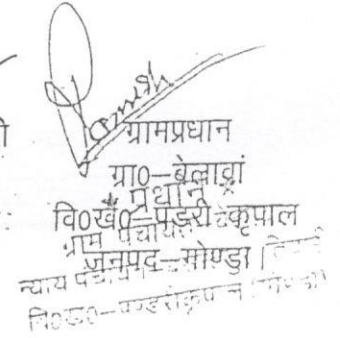 ग्रामप्रधान
ग्रा०—बेलावां
प्रधान
वि०खं०—पंडरी कृपाल
ग्राम पंचायत
जनपद—गोण्डा
न्याय पंचायत
वि०ख०—पण्डरीकृपाल (गोण्डा)